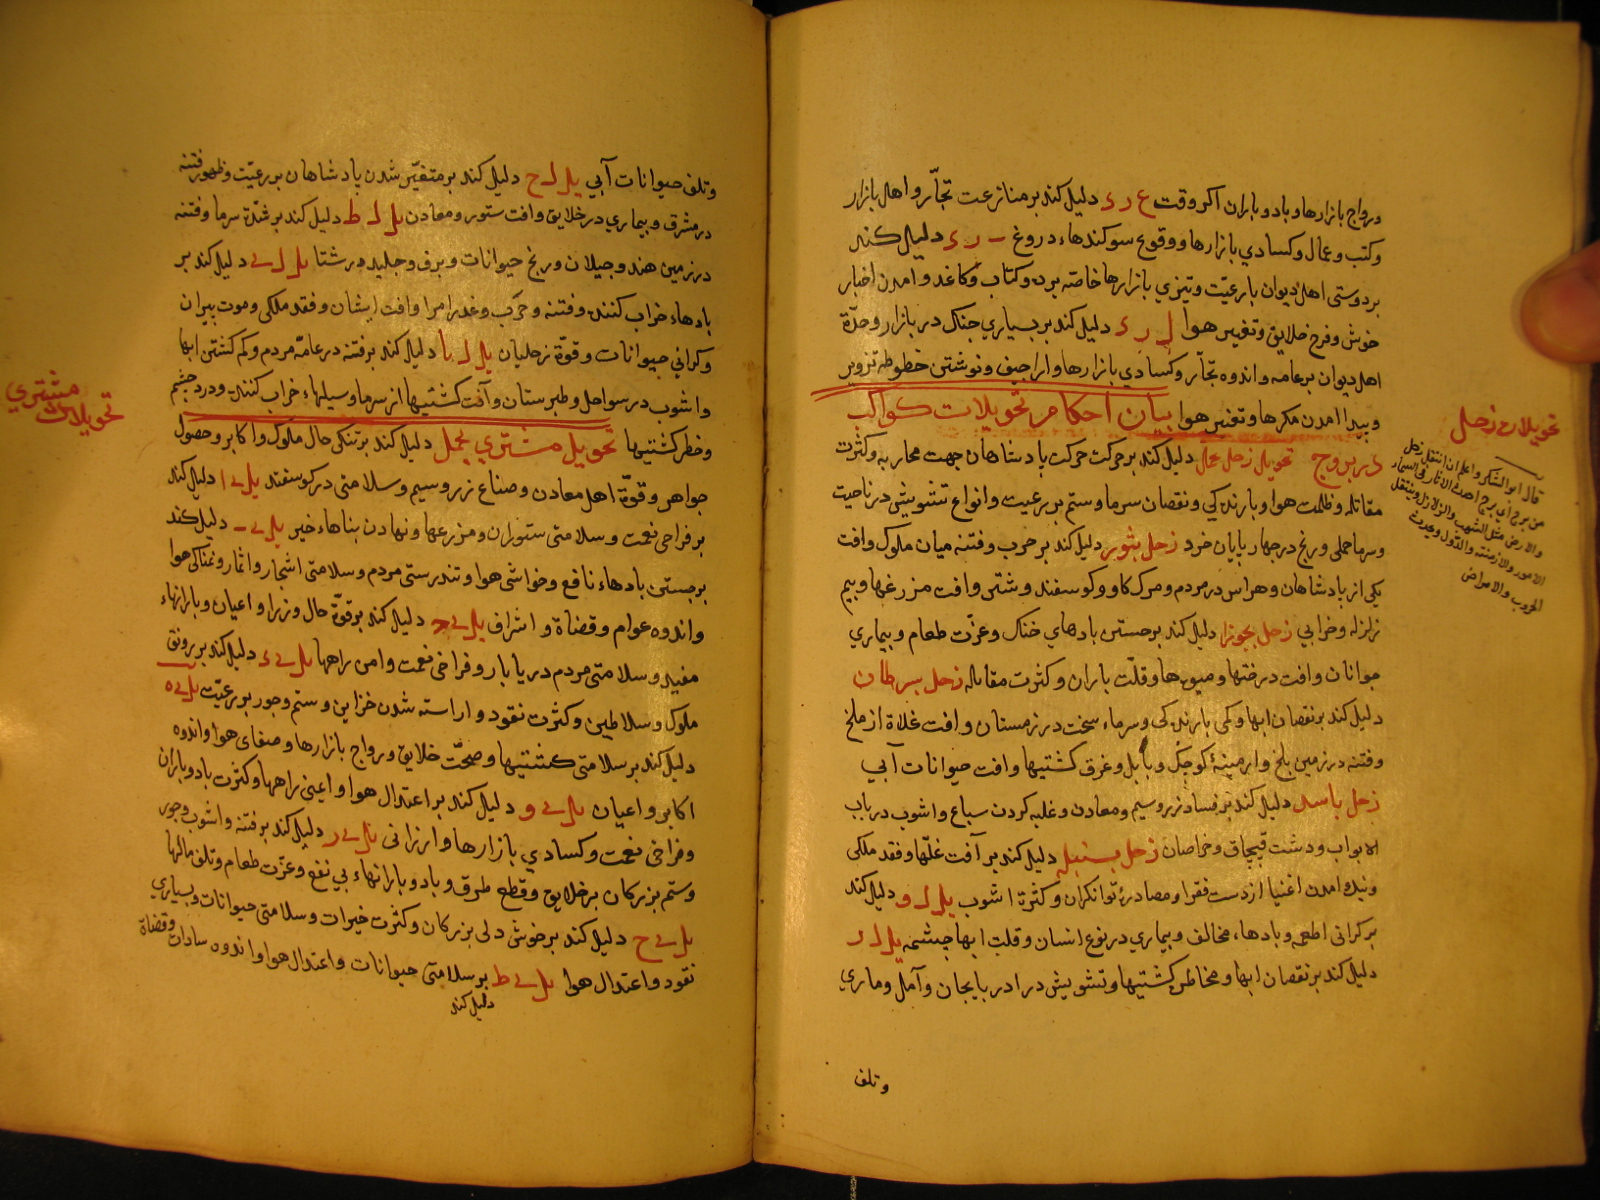 ورواج بازارها و باد و باران اكر وقت ع ر ى دليل كند بر منازعت تجّار و اهل بازار
وكتب وعمال وكسادي بازارها ووقوع سوكندهاء دروغ ـ ر ى دليل كند
بر دوستى اهل ديوان با رعيّت وتيزي بازارها خاصّه برده وكتاب وكاغد وامدن اخبار
خوش وفرح خلايق وتغيير هوا ا ر ى دليل كند بر بسياري جنك در بازار وحدّة
اهل ديوان بر عامه واندوه تجّار وكسادي بازارها واراجيف ونوشتن خطوطه تزوير
وپيدا امدن مكرها وتغيير هوا بيان احكام تحويلات كواكب
در بروج تحويل زحل بحمل دليل كند بر حركت پادشاهان جهت محاربه وكثرت
مقاتله وظلمت هوا وبارندكي ونقصان سرما وستم بر رعيت وانواع تشويش در ناحيت
ورنج در چهار پايان خرد زحل بثور دليل كند بر حرب وفتنه ميان ملوك وافت
يكى از پادشاهان وهراس در مردم ومرك كاو وكوسفند وشتر وافت مزرعها وبيم
زلزله وخرابي زحل بجوزا دليل كند بر جستن بادهاي خنك وعزّت طعام وبيماري
جوانان وافت درختها وميوهها وقلّت باران وكثرت مقاتله زحل بسرطان
دليل كند بر نقصان ابها وكمى بارندكى وسرماء سخت در زمستان وافت غلاة از ملخ
وفتنه در زمين بلخ وارمينيهٔ كوچك وبابل وغرق كشتيها وافت حيوانات آبي
زحل باسد دليل كند بر فساد زر وسيم ومعادن وغلبه كردن سباع واشوب در باب
الابواب ودشت قبچاق وخراصان زحل بسنبله دليل كند بر آفت غلّها وفقد ملكى
وپديد امدن اغنيا از دست فقرا ومصادرهٔ توانكران وكثرة اشوب يل ل و دليل كند
بر كرانى اطعمه وبادهاء مخالف وبيماري در نوع انسان وقلت ابها چشمه يل ل ر
دليل كند بر نقصان ابها ومخاطرهٔ كشتيها وتشويش در ادربايجان وآمل وساري
وتلف
تحويلات زحل
قال ابو الشكر واعلم ان انتقل زحل
من برج اي برج احدث الاثار في السماء
والارض مثل الشهب والزلازل وينتقل
الامور والازمنة والدول ويحدث
الحروب والامراض
وتلف حيوانات آبي يل ل ح دليل كند بر متغيّر شدن پادشاهان بر رعيّت وظهور فتنه
در مشرق وبيماري در خلايق وافت ستور ومعادن يل ل ط دليل كند بر شدّة سرما وفتنه
در زمين هند وجيلان ورنج حيوانات وبرف وجليد در شتا يل ل ے دليل كند بر
بادهاء خراب كننده وفتنه وحرب وغدر امرا وافت ايشان وفقد ملكى وموت پيران
وكراني حيوانات وقوّة زحليان يل ل يا دليل كند بر فتنه در عامّه مردم وكم كشتن ابها
واشوب در سواحل وطبرستان وآفت كشتيها از سرما وسيلهاء خراب كننده ودرد چشم
وخطر كشتيها تحويل مشتري بحمل دليل كند بر نيكى حال ملوك واكابر وحصول
جواهر وقوّة اهل معادن وصناع زر وسيم وسلامتى در كوسفند يل ے ا دليل كند
بر فراخى نعمت وسلامتى ستوران ومزرعها ونهادن بناهاء خير يل ے ـ دليل كند
بر جستن بادهاء نافع وخوشى هوا وتندرستى مردم وسلامتى اشجار واثمار ونمناكى هوا
واندوه عوام وقضاة واشراف يل ے ح دليل كند بر قوّة حال وزرا واعيان وبارانهاء
مفيد وسلامتى مردم دريا بار وفراخى نعمت وامن راهها يل ے ى دليل كند بر رونق
ملوك وسلاطين وكثرت نقود واراسته شدن خزاين وستم وجور بر رعيّت يل ے ه
دليل كند بر سلامتى كشتيها وصحّت خلايق ورواج بازارها وصفاى هوا واندوه
اكابر واعيان يل ے و دليل كند بر اعتدال هوا وايمنى راهها وكثرت باد وباران
وفراخى نعمت وكسادي بازارها وارزانى يل ے ر دليل كند بر فتنه واشوب وجور
وستم بزركان بر خلايق وقطع طرق وباد وبارانهاء بي نفع وعزّت طعام وتلف مالها
يل ے ح دليل كند بر خوش دلى بزركان وكثرت خيرات وسلامتى حيوانات وبسياري
نقود واعتدال هوا يل ے ط بر سلامتى حيوانات واعتدال هوا واندوه سادات وقضاة
دليل كند
تحويلات مشتري